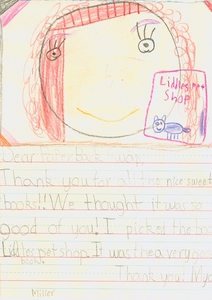 Littles pet
Shop
Dear
Thank you for nice sweet
books!! We thought it was so
good of you! I picked the boo
Littles pet shop. It was the a very good
book.
Thank You!
Miller